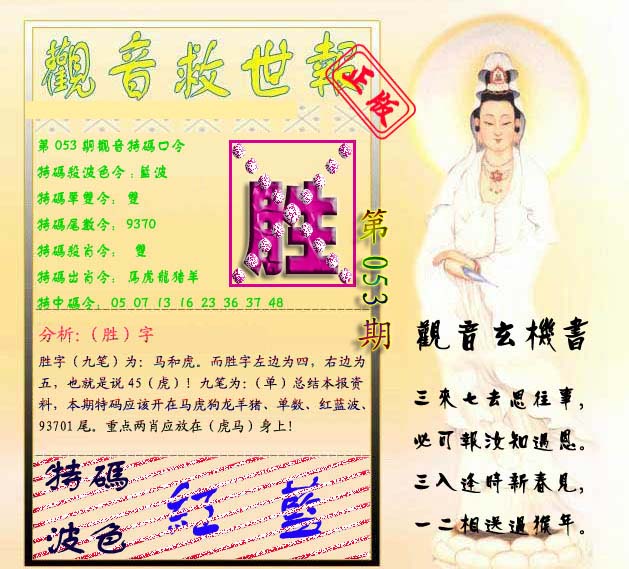 觀音救世報
正版
第 053 期觀音特碼口令
特碼殺波色令:藍波
特碼單雙令: 雙
特碼尾數令: 9370
特碼殺肖令: 雙
特碼出肖令: 馬虎龍猪羊
特中碼令: 05 07 13 16 23 36 37 48
胜
第053期
分析:(胜)字
胜字(九笔)为: 马和虎。而胜字左边为四, 右边为
五, 也就是说 45(虎)! 九笔为:(单)总结本报资
料, 本期特码应该开在马虎狗龙羊猪、单数、红蓝波、
93701 尾。重点两肖应放在(虎马)身上!
特碼
波色
紅 藍
觀音玄機書
三來七去思往事,
必可報汝知過恩。
三入逢時新春見,
一二相送過猴年。